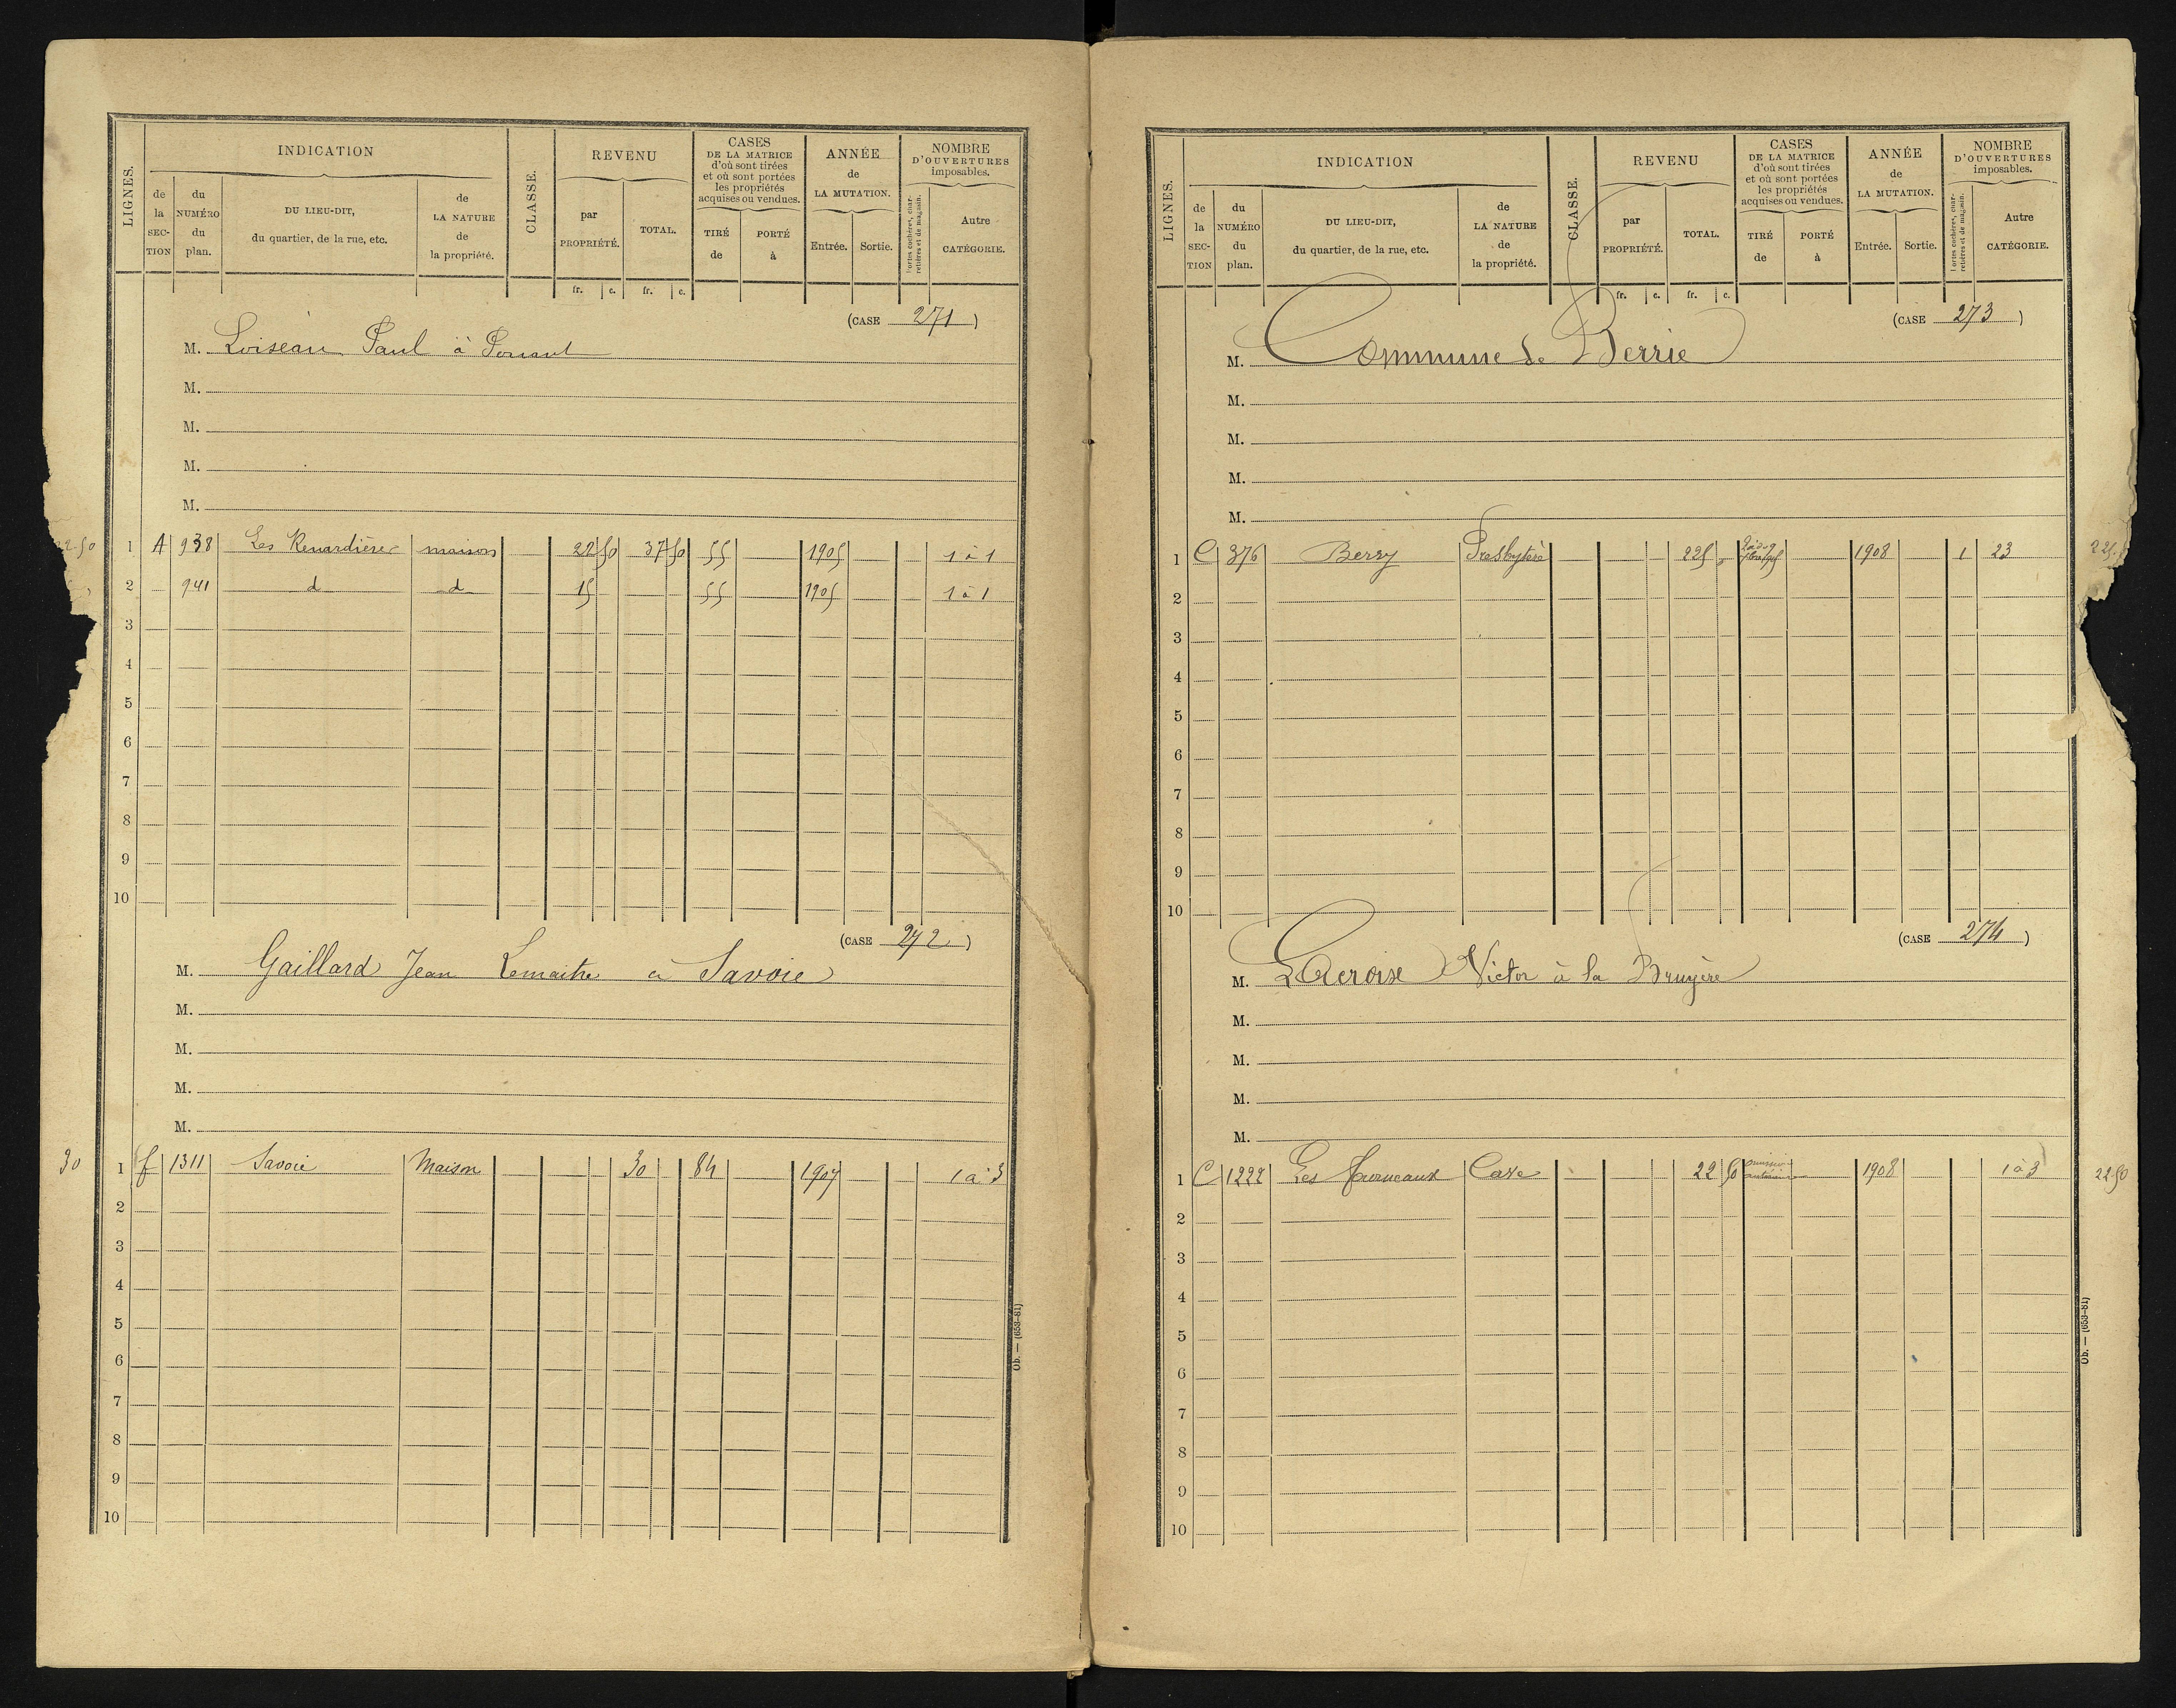 LIGNES.
INDICATION
de la SECTION
du NUMÉRO du plan.
DU LIEU-DIT, du quartier, de la rue, etc.
de LA NATURE de la propriété.
CLASSE.
REVENU
par PROPRIÉTÉ.
TOTAL.
fr. c. fr. c.
CASES DE LA MATRICE d'où sont tirées et où sont portées les propriétés acquises ou vendues.
TIRÉ de
PORTÉ à
ANNÉE de LA MUTATION.
Entrée. Sortie.
NOMBRE D'OUVERTURES imposables.
Portes cochères, charretières et de magasin.
Autre CATÉGORIE.
(CASE 271)
M. Loiseau Paul à Pouant
M.
M.
M.
M.
22.50 1 A 938 Les Renardières maison 22 50 37 50 55 1905 1 à 1
2 941 d d 15 55 1905 1 à 1
3
4
5
6
7
8
9
10
(CASE 272)
M. Gaillard Jean Lemaitre à Savoie
M.
M.
M.
M.
30 1 f 1311 Savoie Maison 30 84 1907 1 à 3
2
3
4
5
6
7
8
9
10
Ob. — (653-81)
LIGNES.
INDICATION
de la SECTION
du NUMÉRO du plan.
DU LIEU-DIT, du quartier, de la rue, etc.
de LA NATURE de la propriété.
CLASSE.
REVENU
par PROPRIÉTÉ.
TOTAL.
fr. c. fr. c.
CASES DE LA MATRICE d'où sont tirées et où sont portées les propriétés acquises ou vendues.
TIRÉ de
PORTÉ à
ANNÉE de LA MUTATION.
Entrée. Sortie.
NOMBRE D'OUVERTURES imposables.
Portes cochères, charretières et de magasin.
Autre CATÉGORIE.
(CASE 273)
M. Commune de Berrie
M.
M.
M.
M.
1 C 376 Berry Presbytère 225 " 1908 1 23 225
2
3
4
5
6
7
8
9
10
(CASE 274)
M. Victor à la Bruyère
M.
M.
M.
M.
1 C 1222 Les Fourneaux Cave 22 50 omission antérieure 1908 1 à 3 22 50
2
3
4
5
6
7
8
9
10
Ob. — (653-81)